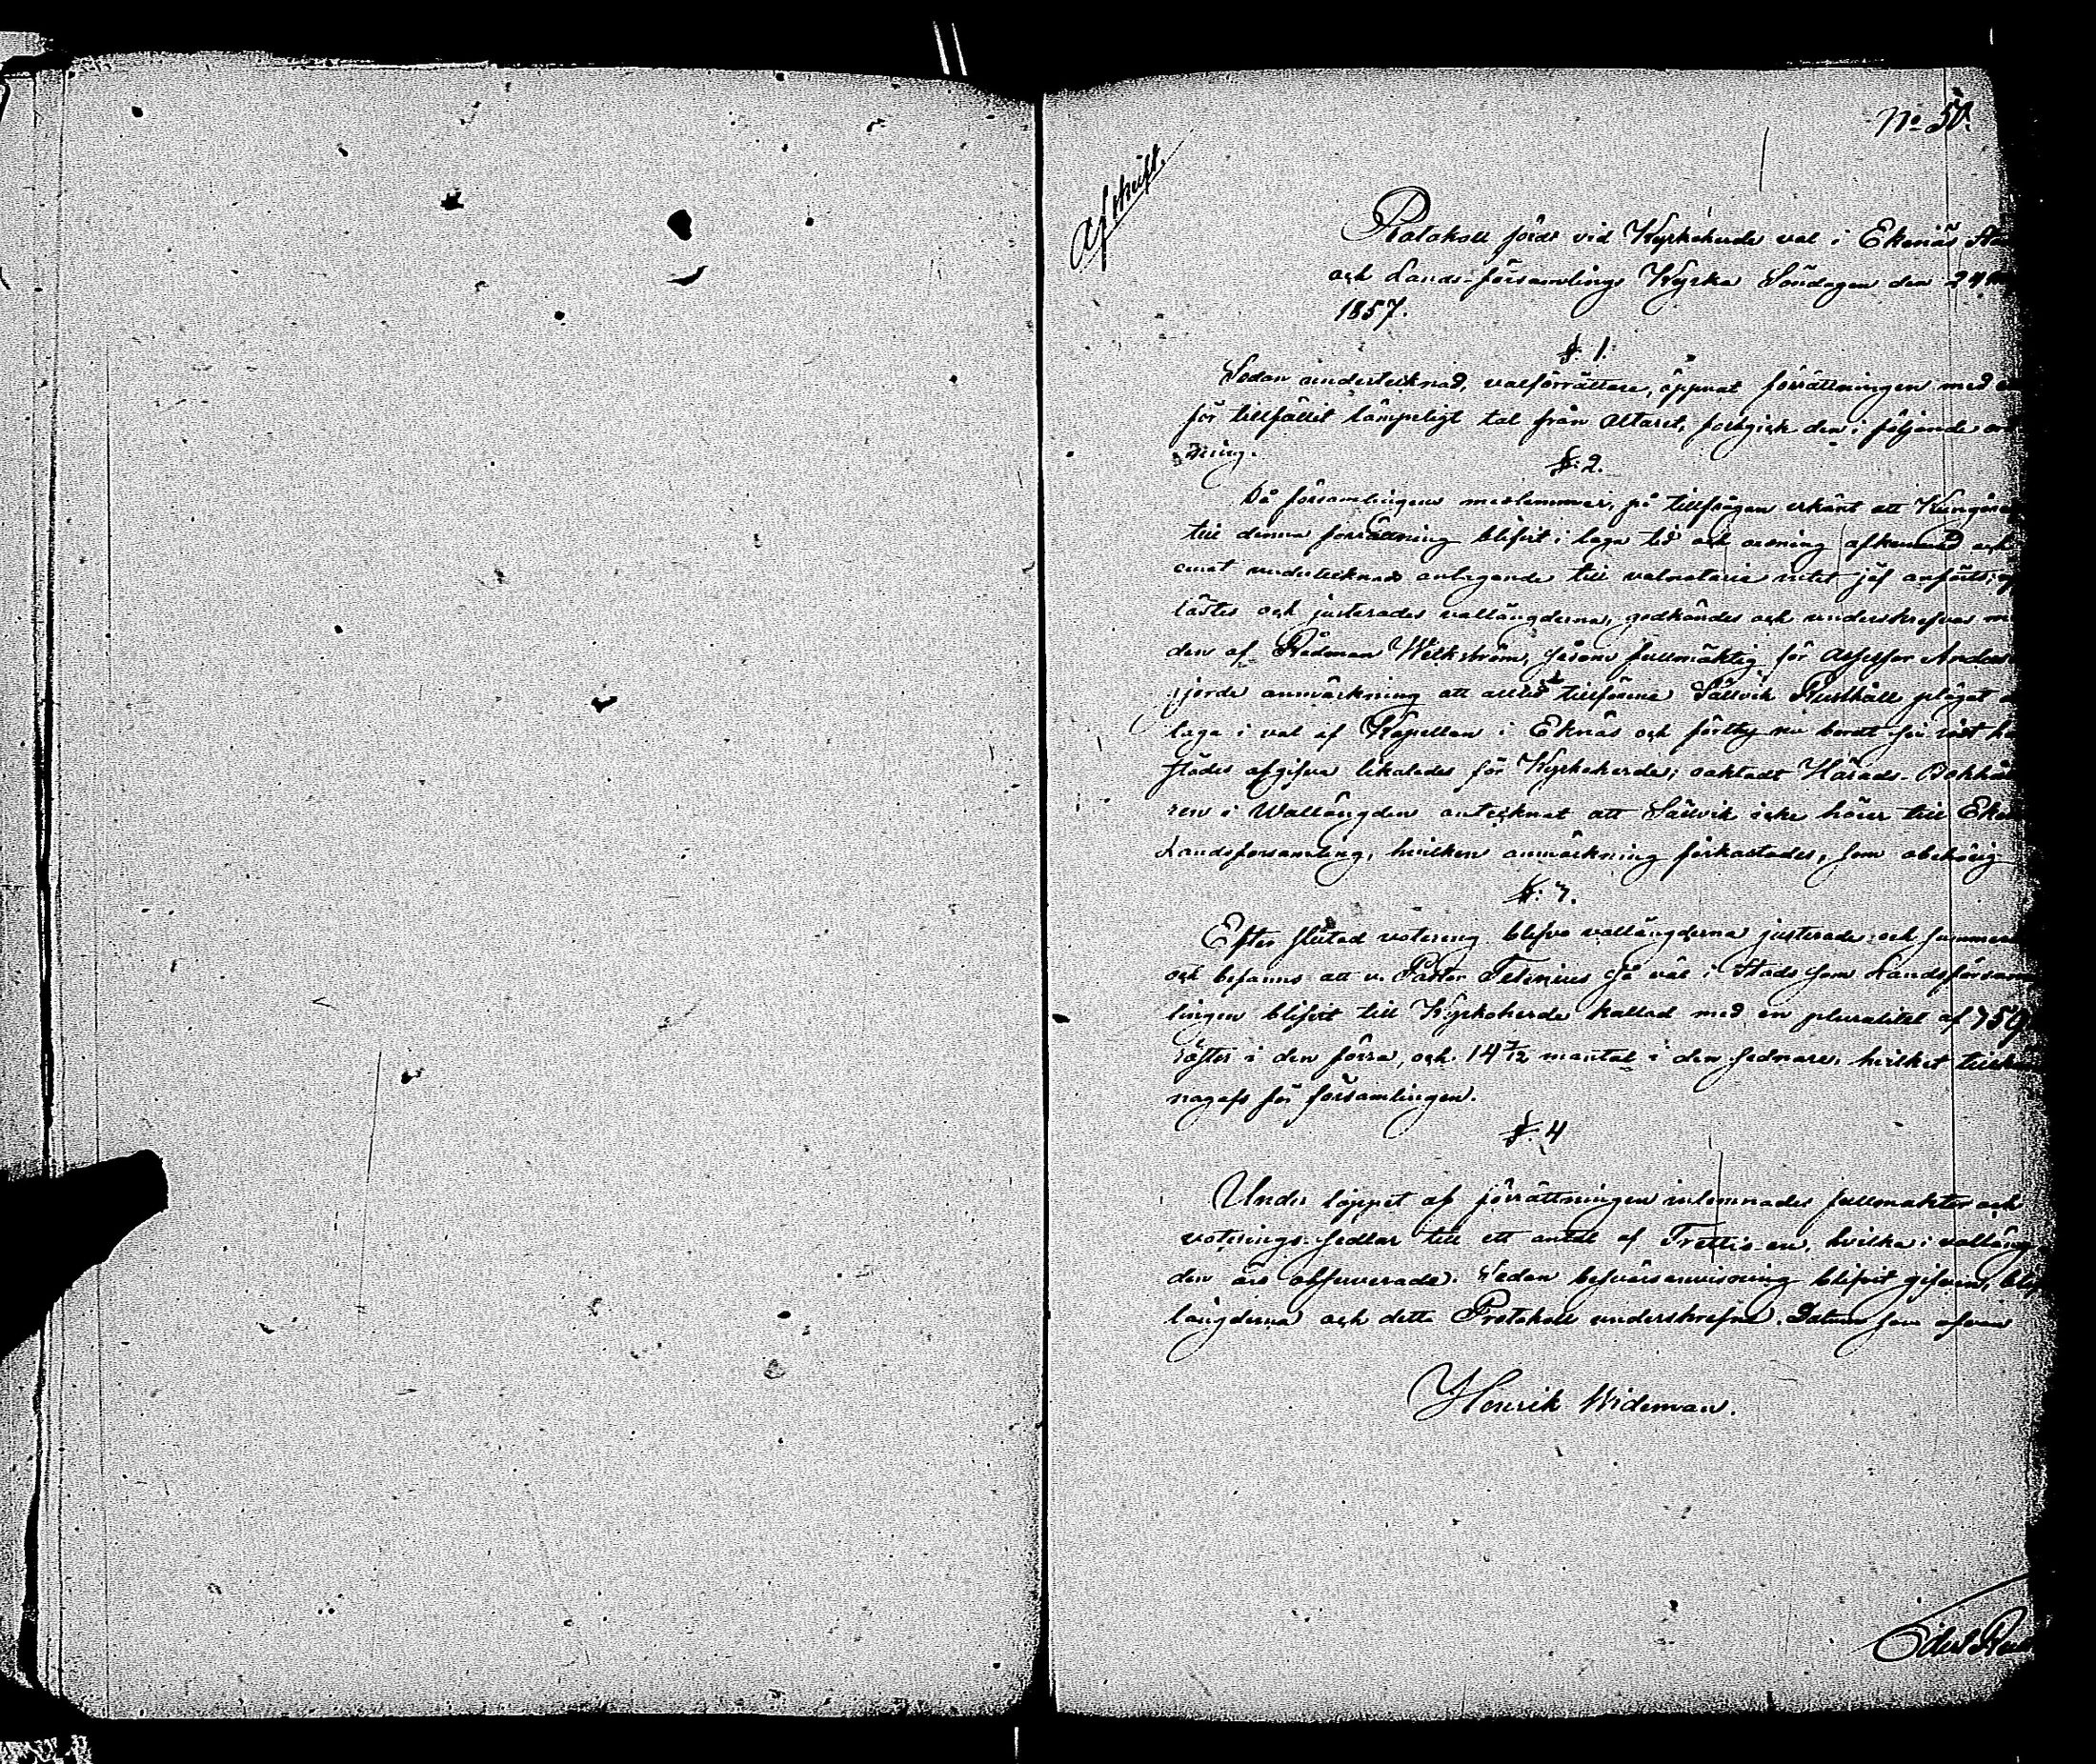 No 57.
Afskrift
Protokoll fördt vid Kyrkoherde val i Ekenäs
och Lands-församlings Kyrka Söndagen den 24
1857.
§. 1.
Sedan undertecknad, valförrättare, öppnat förrättningen med
för tillfället lämpeligt tal från Altaret, försigick den i följande
ning.
§. 2.
Då församlingens medlemmar, på tillfrågan erkänt att
till denna förrättning blifvit i laga tid och ordning
emot undertecknads antagande till valnotarie intet jäf anförts,
lästes och justerades vallängderna, godkändes och underskrefvos
den af Rådman Wickström, såsom fullmäktig för Assessor
gjorde anmärkning att alltid tillförene Sällvik Rusthåll plägat
taga i val af Kapellan i Eknäs och förthy nu borde sin röst
städes afgifva likaledes för Kyrkoherde; oaktadt Härads-
ren i Wallängden antecknat att Sällvik icke hörer till
Landsförsamling, hvilken anmärkning förkastades, som obehörig
§. 3.
Efter slutad votering blefvo vallängderna justerade och
och befanns att v. Pastor Telenius så väl i Stads som
lingen blifvit till Kyrkoherde kallad med en pluralitet af 759
röster i den förra, och 14 7/12 mantal i den sednare, hvilket
nagafs för församlingen.
§. 4
Under loppet af förrättningen inlemnades fullmakter och
voterings-sedlar till ett antal af Trettio-en, hvilka i
den äro observerade. Sedan besvärsanvisning blifvit gifven,
längderna och detta Protokoll underskrefne. Datum som ofvan
Henrik Wideman.